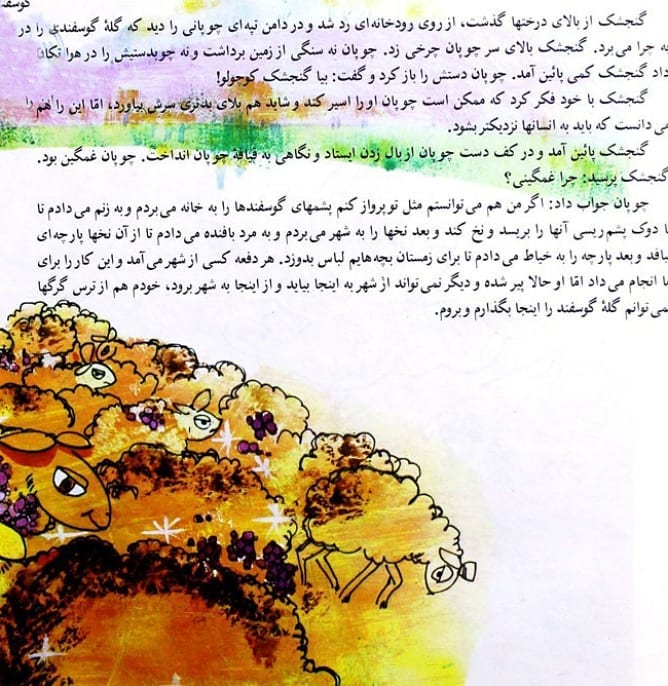 گوسفند
گنجشک از بالای درختها گذشت، از روی رودخانه‌ای رد شد و در دامن تپه‌ای چوپانی را دید که گلهٔ گوسفندی را در
به چرا می‌برد. گنجشک بالای سر چوپان چرخی زد. چوپان نه سنگی از زمین برداشت و نه چوبدستیش را در هوا تکان
داد گنجشک کمی پائین آمد. چوپان دستش را باز کرد و گفت: بیا گنجشک کوچولو!
گنجشک با خود فکر کرد که ممکن است چوپان او را اسیر کند و شاید هم بلای بدتری سرش بیاورد، امّا این را هم
می‌دانست که باید به انسانها نزدیکتر بشود.
گنجشک پائین آمد و در کف دست چوپان از بال زدن ایستاد و نگاهی به قیافهٔ چوپان انداخت. چوپان غمگین بود.
گنجشک پرسید: چرا غمگینی؟
چوپان جواب داد: اگر من هم می‌توانستم مثل تو پرواز کنم پشمهای گوسفندها را به خانه می‌بردم و به زنم می‌دادم تا
با دوک پشم‌ریسی آنها را بریسد و نخ کند و بعد نخها را به شهر می‌بردم و به مرد بافنده می‌دادم تا از آن نخها پارچه‌ای
ببافد و بعد پارچه را به خیاط می‌دادم تا برای زمستان بچه‌هایم لباس بدوزد. هر دفعه کسی از شهر می‌آمد و این کار را برای
ما انجام می‌داد امّا او حالا پیر شده و دیگر نمی‌تواند از شهر به اینجا بیاید و از اینجا به شهر برود، خودم هم از ترس گرگها
نمی‌توانم گلهٔ گوسفند را اینجا بگذارم و بروم.